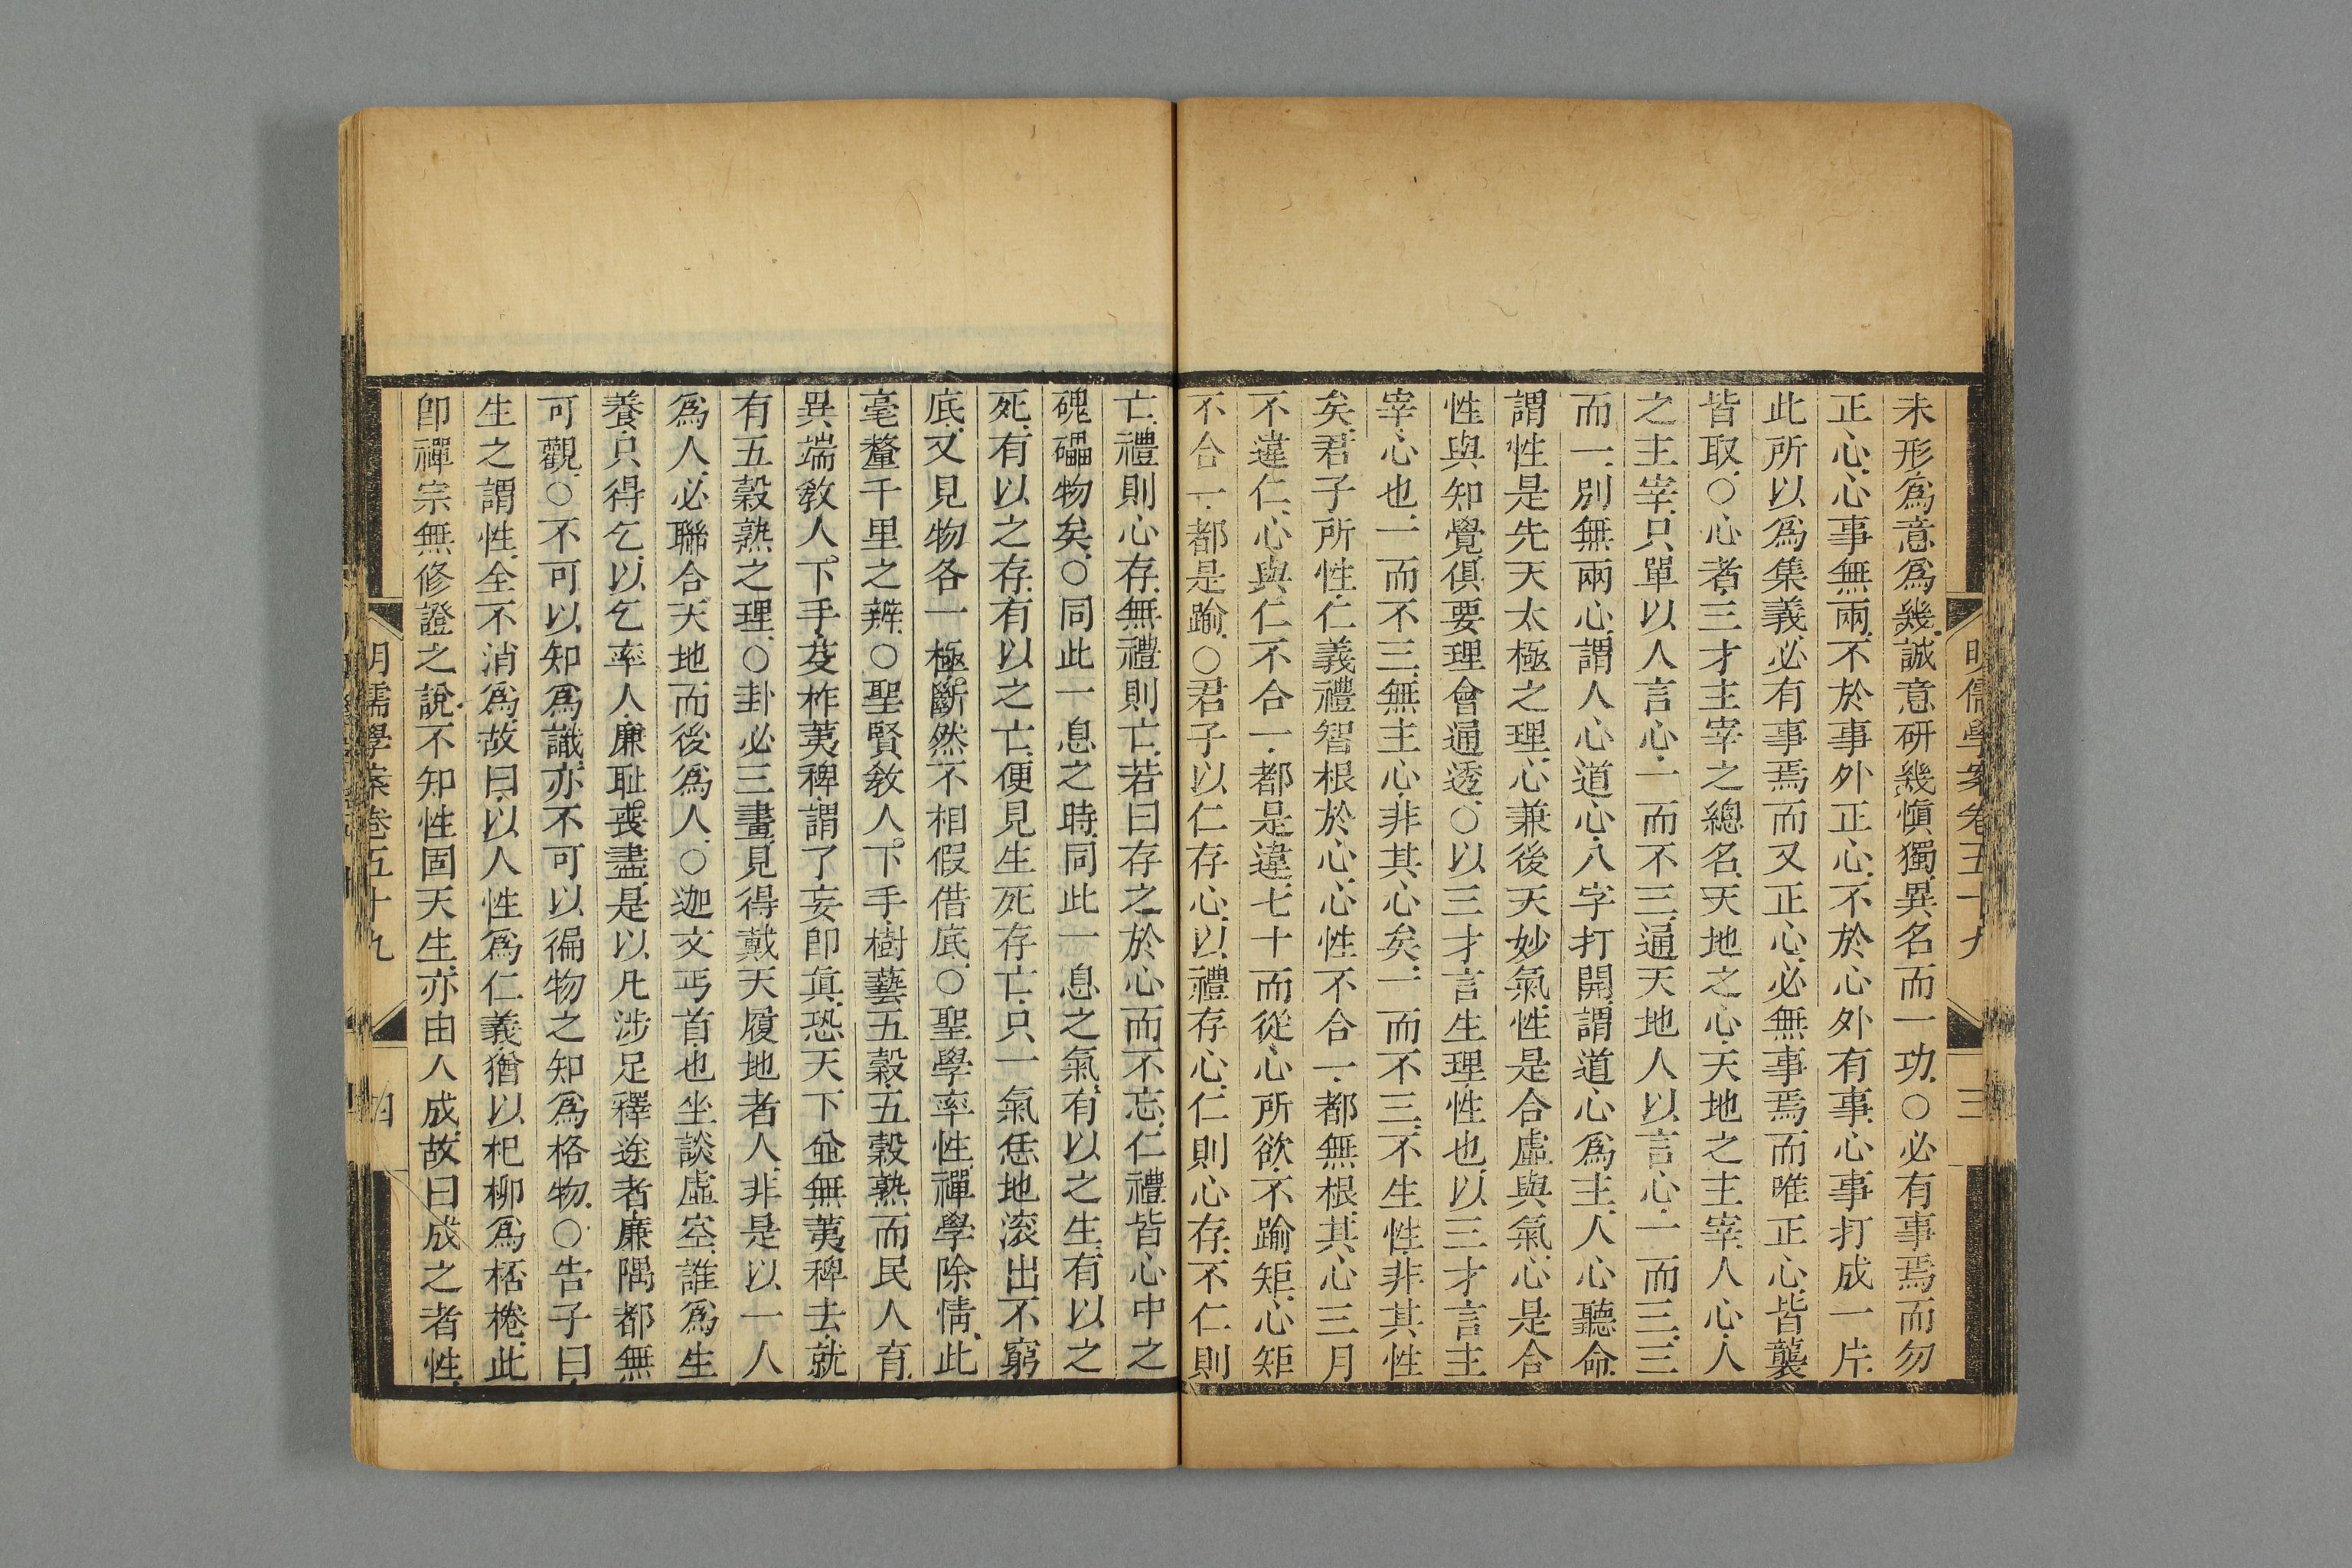 明儒學案卷五十九
三
未形爲意爲幾誠意研幾愼獨異名而一功○必有事焉而勿
正心心事無兩不於事外正心不於心外有事心事打成一片
此所以爲集義必有事焉而又正心必無事焉而唯正心皆襲
皆取○心者三才主宰之總名天地之心天地之主宰人心人
之主宰只單以人言心一而不三通天地人以言心一而三三
而一別無兩心謂人心道心八字打開謂道心爲主人心聽命
謂性是先天太極之理心兼後天妙氣性是合虛與氣心是合
性與知覺俱要理會通透○以三才言生理性也以三才言主
宰心也一而不三無主心非其心矣一而不三不生性非其性
矣君子所性仁義禮智根於心心性不合一都無根其心三月
不違仁心與仁不合一都是違七十而從心所欲不踰矩心矩
不合一都是踰○君子以仁存心以禮存心仁則心存不仁則
亡禮則心存無禮則亡若曰存之於心而不忘仁禮皆心中之
磈礧物矣○同此一息之時同此一息之氣有以之生有以之
死有以之存有以之亡便見生死存亡只一氣恁地滚出不窮
底又見物各一極斷然不相假借底○聖學率性禪學除情此
毫釐千里之辨○聖賢敎人下手樹藝五穀五穀熟而民人育
異端敎人下手芟柞荑稗謂了妄卽眞恐天下並無荑稗去就
有五穀熟之理○卦必三畫見得戴天履地者人非是以一人
爲人必聯合天地而後爲人○迦文丐首也坐談虛空誰爲生
養只得乞以乞率人廉耻喪盡是以凡涉足釋途者廉隅都無
可觀○不可以知爲識亦不可以徧物之知爲格物○告子曰
生之謂性全不消爲故曰以人性爲仁義猶以杞柳爲桮棬此
卽禪宗無修證之說不知性固天生亦由人成故曰成之者性
明儒學案卷五十九
四